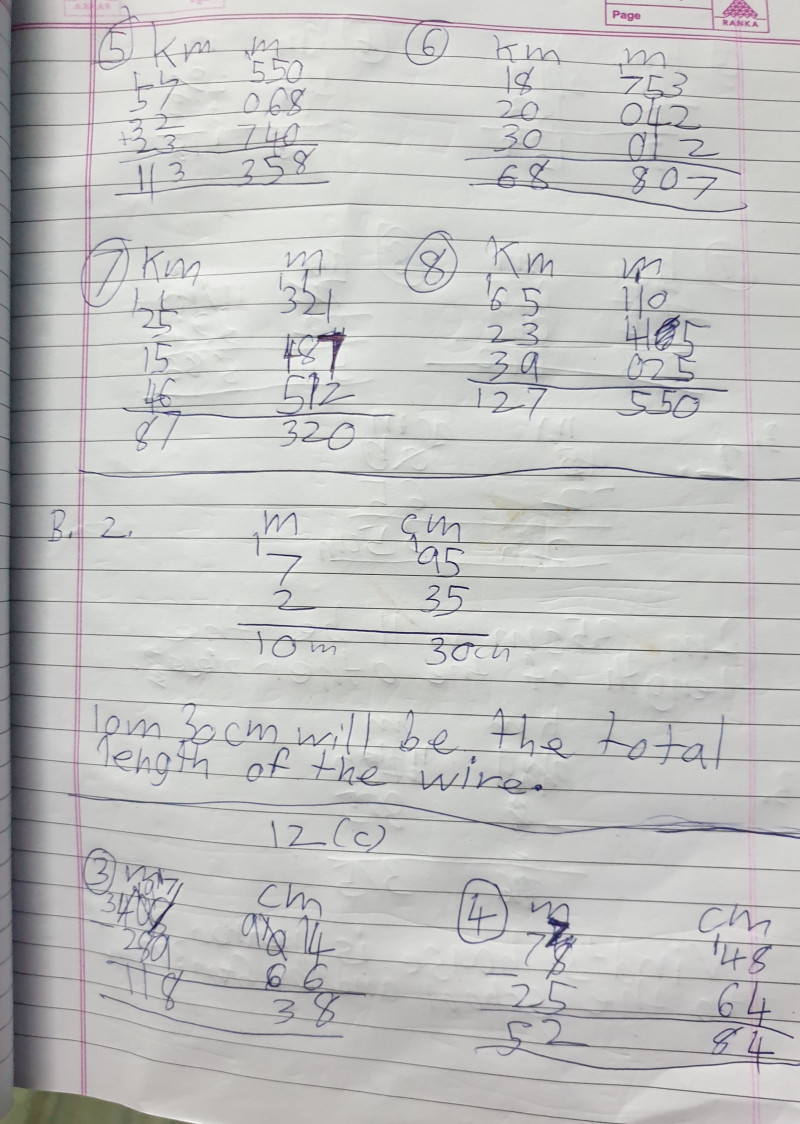 Page
RANKA
⑤ Km m
550
57 068
32
+23 740
113 358
⑥ Km m
18 753
20 042
30 012
68 807
⑦ Km m
25 321
15 487
46 512
87 320
⑧ Km m
65 110
23 415
39 025
127 550
B. 2. m cm
7 95
2 35
10m 30cm
10m 30cm will be the total
length of the wire.
12(c)
③ m cm
- 289 66
118 38
④ m cm
78 148
- 25 64
52 84